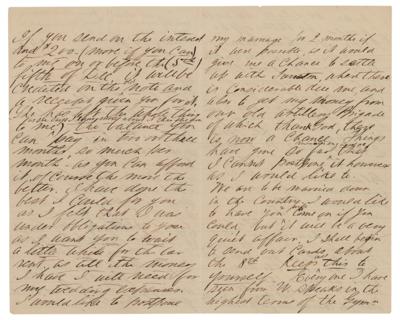 If you send on the interest
and $200 / more if you can /
to me on or before the (5th)
fifth of Dec. it will be
credited on the note and
a receipt given you for it.
to me) The balance you
can pay in two or three
months, so much per
month as you can afford
it, of course the more the
better. I have done the
best I could for you
as I felt that I was
under obligations to you
as I want you to wait
a little while for the
as all the money
I have I will need for
my wedding expenses
I would like to postpone
my marriage for 2 months if
it were possible, as it would
give me a chance to settle
up with where there
is considerable due me, and
also to get my money from
our old artillery Brigade
of which thank God, there
is now a chance. Things
have gone so far that
I cannot postpone it however
as I would like to.
We are to be married down
in the Country. I would like
to have you come on if you
could, but it will be a very
quiet affair. I shall begin
to send out Cards, about
the 5th Keep this to
yourself. Every one I have
seen from W. speaks in the
highest terms of the Gym-